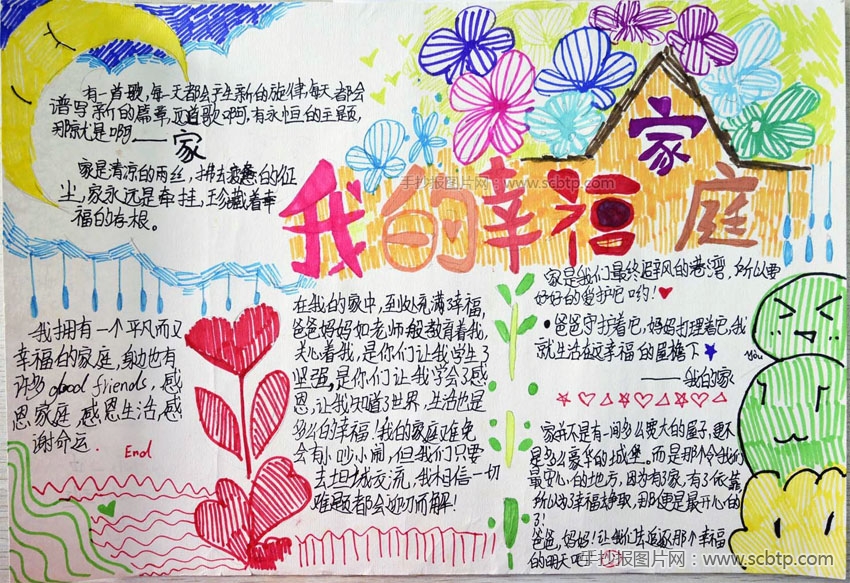 有一首歌,每天都会产生新的旋律,每天都会
谱写新的篇章,这首歌啊,有永恒的主题,
那就是啊——家
家是清凉的雨丝,拂去疲惫的征
尘,家永远是牵挂,珍藏着幸
福的存根。
手抄报图片网:www.scbtp.com
我的幸福家庭
我拥有一个平凡而又
幸福的家庭,身边也有
许多good friends,感
恩家庭,感恩生活,感
谢命运.
End
在我的家中,到处充满幸福,
爸爸妈妈如老师般教育着我,
关心着我,是你们让我学生了
坚强,是你们让我学会了感
恩,让我知道了世界,生活也是
多么的幸福!我的家庭难免
会有小吵小闹,但我们只要
去坦诚交流,我相信一切
难题都会迎刃而解!
家是我们最终避风的港湾,所以要
好好的爱护它哟!
•爸爸守护着它,妈妈打理着它,我
就生活在这幸福的屋檐下
——我的家
You
家并不是有一间多么宽大的屋子,更不
是多么豪华的城堡。而是那个令我们
最中心的地方,因为有了家,有了依靠
所以为了幸福争取,那便是最开心的
了!
爸爸,妈妈!让我们去追逐那个幸福
的明天吧
手抄报图片网:www.scbtp.com